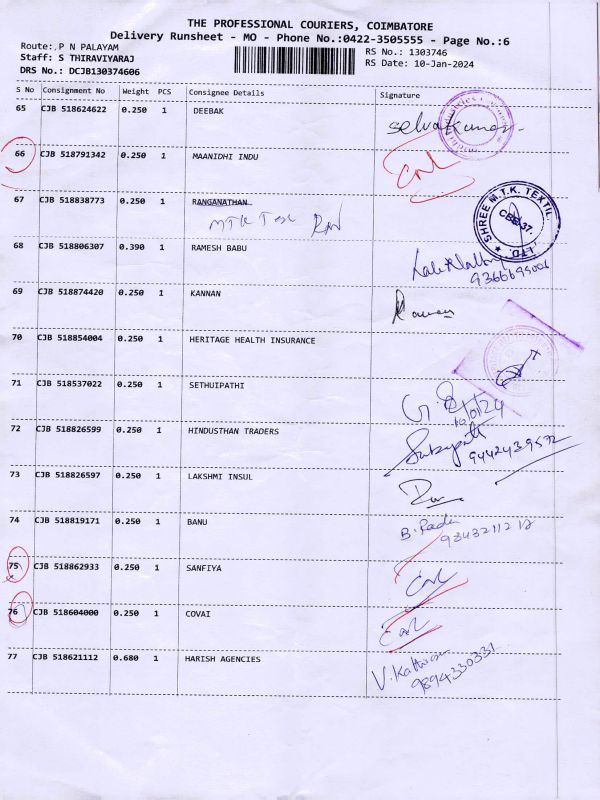 THE PROFESSIONAL COURIERS, COIMBATORE
Delivery Runsheet - MO - Phone No.:0422-3505555 - Page No.:6
Route:, P N PALAYAM
RS No.: 1303746
Staff: S THIRAVIYARAJ
RS Date: 10-Jan-2024
DRS No.: DCJB130374606
S No Consignment No Weight PCS Consignee Details Signature
65 CJB 518624622 0.250 1 DEEBAK
Selvakumar
66 CJB 518791342 0.250 1 MAANIDHI INDU
67 CJB 518838773 0.250 1 RANGANATHAN
SHREE M.T.K. TEXTIL
CBE-37.
LTD.
68 CJB 518806307 0.390 1 RAMESH BABU
69 CJB 518874420 0.250 1 KANNAN
70 CJB 518854004 0.250 1 HERITAGE HEALTH INSURANCE
71 CJB 518537022 0.250 1 SETHUIPATHI
10/1/24
72 CJB 518826599 0.250 1 HINDUSTHAN TRADERS
9442439572
73 CJB 518826597 0.250 1 LAKSHMI INSUL
74 CJB 518819171 0.250 1 BANU
75 CJB 518862933 0.250 1 SANFIYA
76 CJB 518604000 0.250 1 COVAI
77 CJB 518621112 0.680 1 HARISH AGENCIES
9894330331